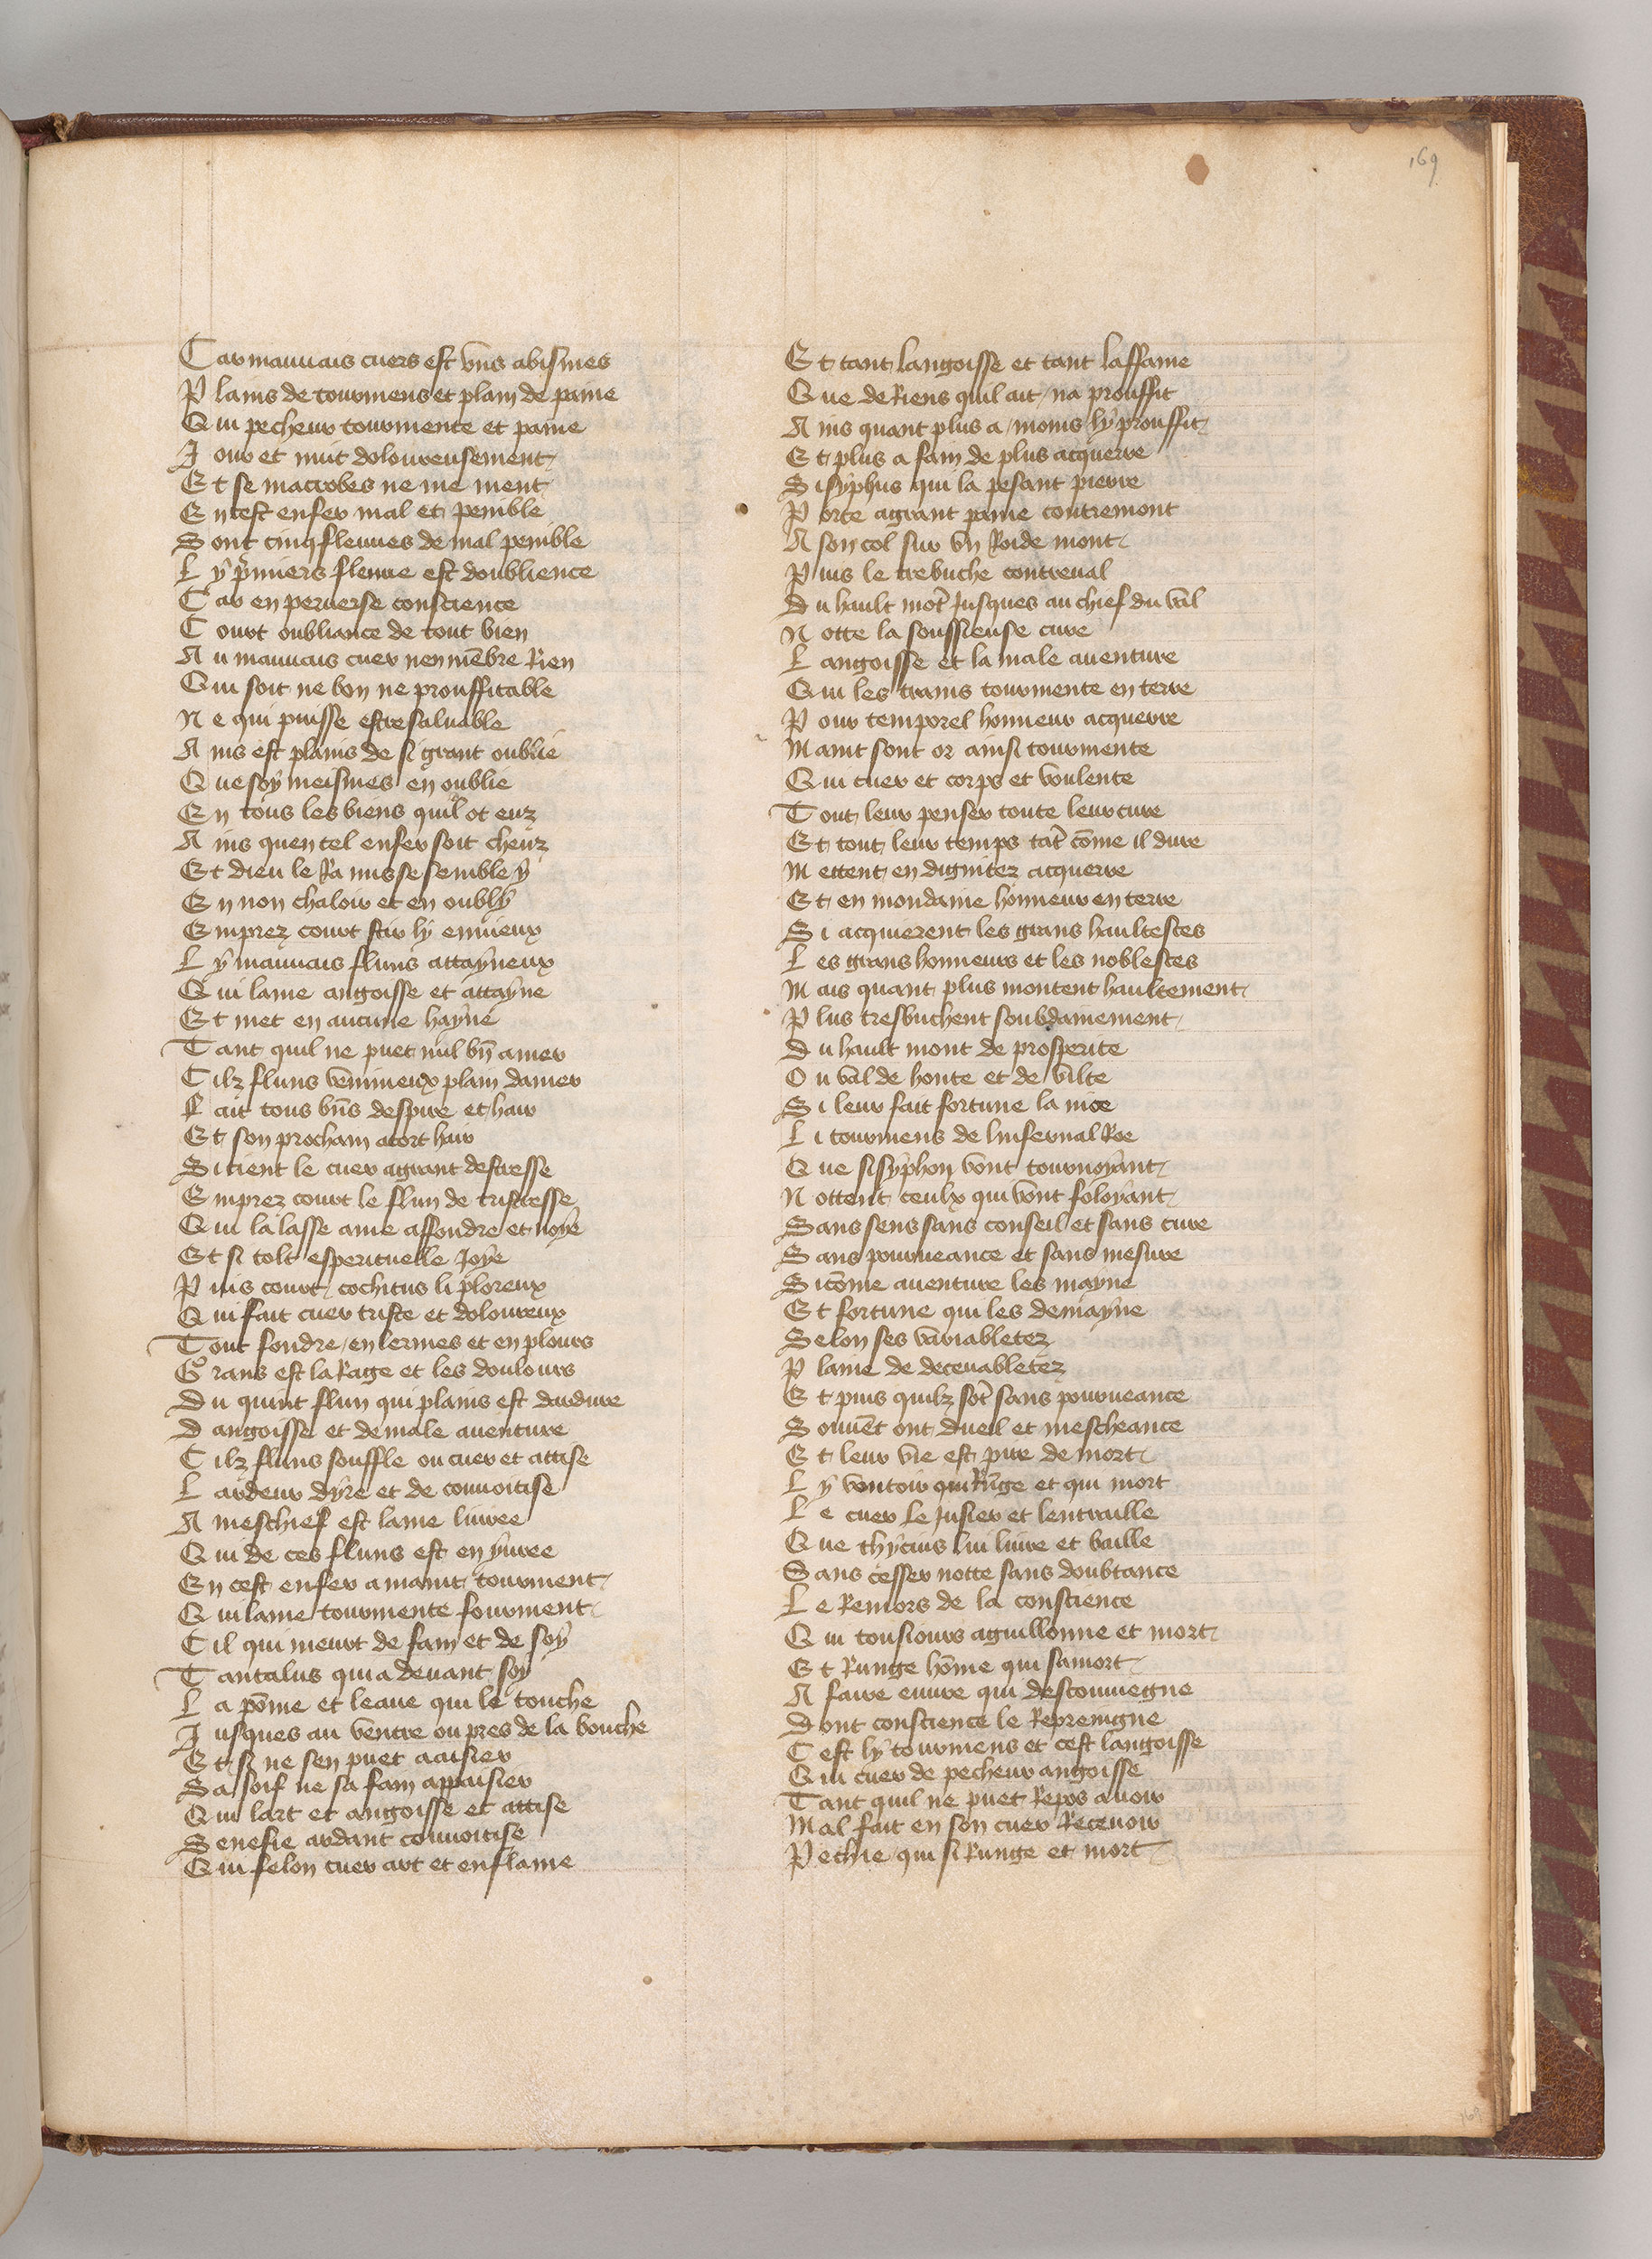 169
Car mauuais cuers est vns abismes
Plains de tourmens et plain de paine
Qui pecheur tourmente et paine
Jour et nuit doloureusement
Et se macrobes ne me ment
En cest enfer mal et penible
Sont cinq fleuues de mal penible
Ly p̃miers fleuue est doublience
Car en peruerse conscience
Court oubliance de tout bien
Au mauuais cuer nen mẽbre Rien
Qui soit ne bon ne prouffitable
Ne qui puisse estre saluable
Ains est plains de si grant oublie
Que soy meismes en oublie
En tous les biens quil ot euz
Ains quen tel enfer soit cheuz
Et dieu le Ra mis se semble y
En non chaloir et en oubly
Emprez court stir ly enuieux
Ly mauuais fluns attayneux
Qui lame angoisse et attayne
Et met en aucune hayne
Tant quil ne puet nul bñ amer
Cilz fluns venimeux plain damer
Fait tous bñs despire et hair
Et son procham atort hair
Si tient le cuer agrant destresse
Emprez court le flun de tristresse
Qui la lasse ame affondre et noye
Et si tolt esperituelle Joye
Puis court cochitus li ploreux
Qui fait cuer triste et doloureux
Tout fondre / en lermes et en plours
Grans est la Rage et les doulours
Du quint flun qui plains est dardure
Dangoisse et de male auenture
Cilz fluns souffle ou cuer et attise
Lardeur dyre et de conuoitise
A meschief est lame liuree
Qui de ces fluns est en yuree
En cest enfer a maint tourment
Qui lame tourmente fourment
Cil qui meurt de fam et de soy
Tantalus qui a deuant soy
La põme et leaue qui le touche
Jusques au ventre ou pres de la bouche
Et si ne sen puet aaisier
Sa soif ne sa fam appaisier
Qui lart et angoisse et attise
Senefie ardant conuoitise
Qui felon cuer art et enflame
Et tant langoisse et tant laffame
Que de Riens quil ait / na prouffit
Ains quant plus a / moins ly prouffit
Et plus a faim de plus acquerre
Sisyphus qui la pesant pierre
Porte agrant paine contremont
A son col sur vn Roide mont
Puis le trebuche contreual
Du hault mõt Jusques au chief du val
Notte la soussieuse cure
Langoisse et la male auenture
Qui les trains tourmente en terre
Pour temporel honneur acquerre
Maint sont or ainsi tourmente
Qui cuer et corps et voulente
Tout leur penser toute leur cure
Et tout leur temps tãt cõme il dure
Mettent en dignitez acquerre
Et en mondaine honneur en terre
Si acquierent les grans haultesces
Les grans honneurs et les noblesces
Mais quant plus montent haultement
Plus tresbuchent soubdainement
Du hault mont de prosperite
Ou val de honte et de vilte
Si leur fait fortune la moe
Li tourmens de linfernal Roe
Que sisyphon vont tournoyant
Nottent ceulx qui vont foloyant
Sans sens sans conseil et sans cure
Sans pourueance et sans mesure
Si cõme auenture les mayne
Et fortune qui les demayne
Selon ses variabletez
Plaine de deceuabletez
Et puis quilz sõt sans pourueance
Souuẽt ont dueil et mescheance
Et leur vie est pire de mort
Ly voutoir qui Rũge et qui mort
Le cuer le Jusier et lentraille
Que thycius lui liure et baille
Sans cesser notte sans doubtance
Le Remors de la conscience
Qui tousiours aguillonne et mort
Et Runge hõme qui samort
A faire euure qui descouuiegne
Dont conscience le Repreingne
Cest ly tourmens et cest langoisse
Qui cuer de pecheur angoisse
Tant quil ne puet Repos auoir
Mal fait en son cuer Receuoir
Pechie qui si Runge et mort